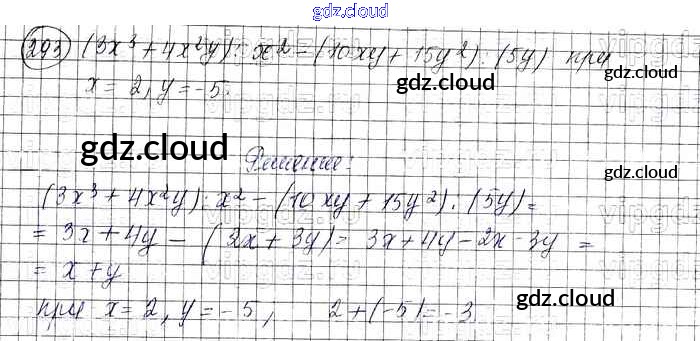 gdz.cloud
293 (3x³ + 4x²y) : x² - (10xy + 15y²) : (5y) при
gdz.cloud
gdz.cloud
x = 2, y = -5.
gdz.cloud
Решение:
gdz.cloud
(3x³ + 4x²y) : x² - (10xy + 15y²) : (5y) =
= 3x + 4y - (2x + 3y) = 3x + 4y - 2x - 3y =
= x + y
gdz.cloud
при x = 2, y = -5, 2 + (-5) = -3
gdz.cloud